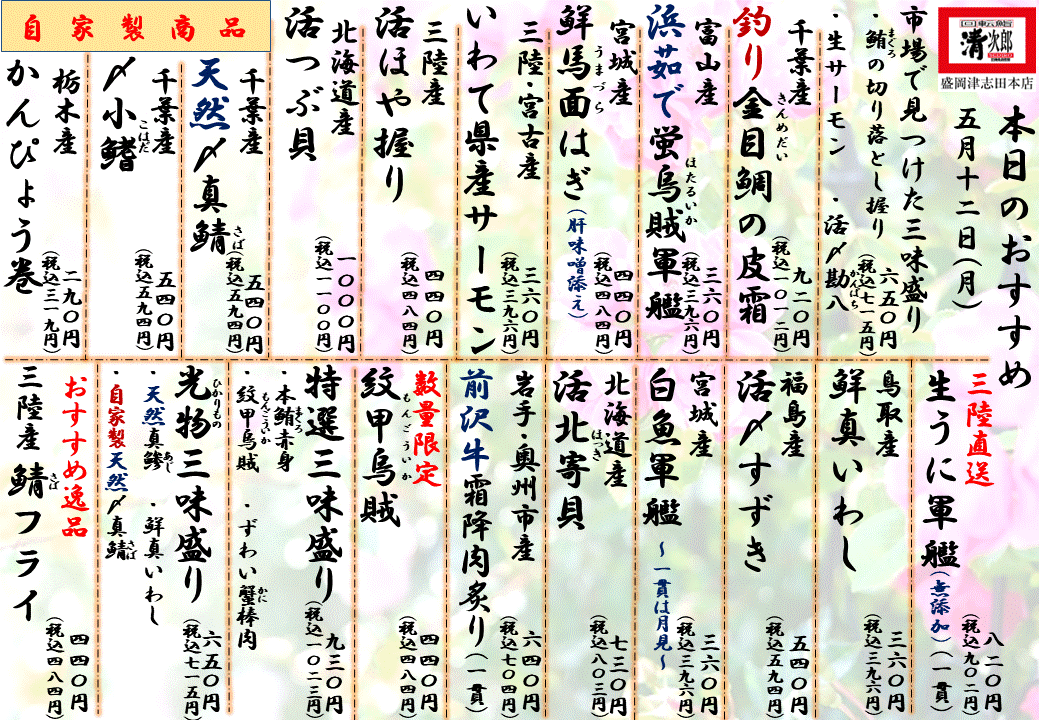 回転鮨
清次郎
盛岡津志田本店
本日のおすすめ
五月十二日(月)
市場で見つけた三味盛り
・鮪の切り落とし握り
まぐろ
・生サーモン ・活〆勘八
かんぱち
六五〇円
(税込七一五円)
千葉産
釣り金目鯛の皮霜
きんめだい
九二〇円
(税込一〇一二円)
富山産
浜茹で蛍烏賊軍艦
ほたるいか
三六〇円
(税込三九六円)
宮城産
鮮馬面はぎ(肝味噌添え)
うまづら
四四〇円
(税込四八四円)
三陸・宮古産
いわて県産サーモン
三六〇円
(税込三九六円)
三陸産
活ほや握り
四四〇円
(税込四八四円)
北海道産
活つぶ貝
一〇〇〇円
(税込一一〇〇円)
自家製商品
千葉産
天然〆真鯖
さば
五四〇円
(税込五九四円)
千葉産
〆小鰭
こはだ
五四〇円
(税込五九四円)
栃木産
かんぴょう巻
二九〇円
(税込三一九円)
三陸直送
生うに軍艦(無添加)(一貫)
八二〇円
(税込九〇二円)
鳥取産
鮮真いわし
三六〇円
(税込三九六円)
福島産
活〆すずき
五四〇円
(税込五九四円)
宮城産
白魚軍艦 ~一貫は月見~
三六〇円
(税込三九六円)
北海道産
活北寄貝
ほっき
七三〇円
(税込八〇三円)
岩手・奥州市産
前沢牛霜降肉炙り(一貫)
六四〇円
(税込七〇四円)
数量限定
紋甲烏賊
もんごういか
四四〇円
(税込四八四円)
特選三味盛り
・本鮪赤身
まぐろ
・紋甲烏賊 ・ずわい蟹棒肉
もんごういか
かに
九三〇円
(税込一〇二三円)
光物三味盛り
ひかりもの
・天然真鯵 ・鮮真いわし
あじ
・自家製天然〆真鯖
さば
六五〇円
(税込七一五円)
おすすめ逸品
三陸産 鯖フライ
さば
四四〇円
(税込四八四円)